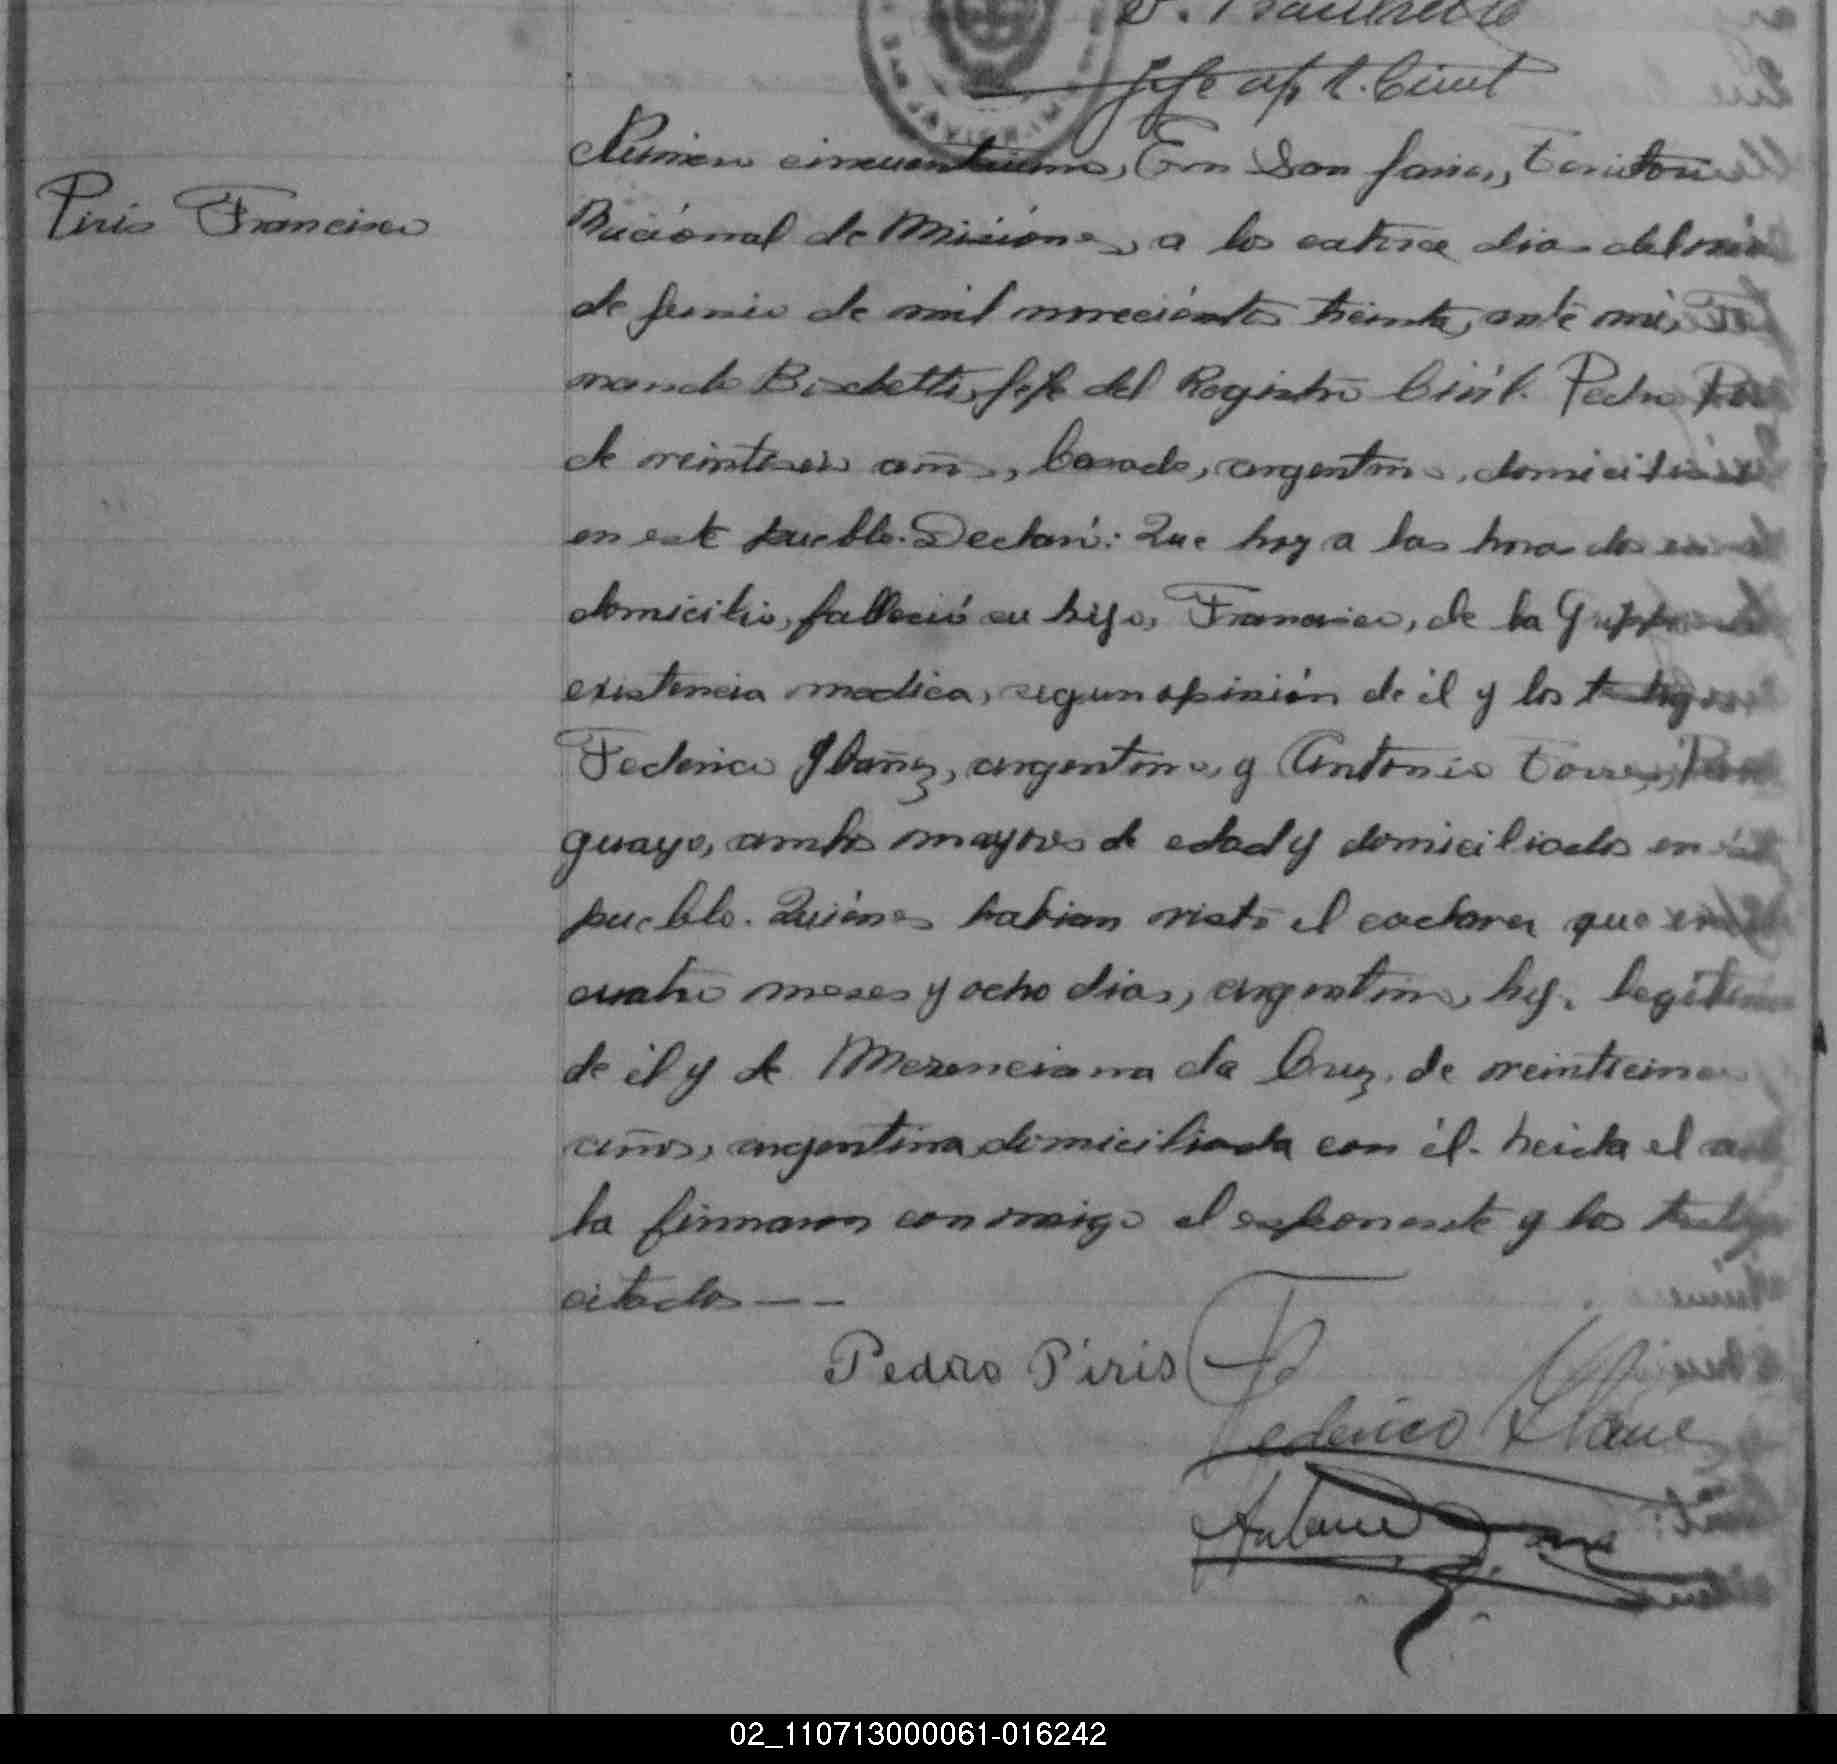 Jefe of. R. Civil
Piris Francisco
Número cincuentiuno, En San Javier, Territorio
Nacional de Misiones, a los catorce dias del mes
de Junio de mil noveciéntos treinta, ante mi,
nando Bechetti, Jefe del Registro Civil. Pedro Piris
de veintiseis años, Casado, argentino, domiciliado
en este pueblo. Declaró: Que hoy a las horas dos en su
domicilio, falleció su hijo, Francisco, de la Grippe
existencia medica, segun opinión de él y los testigos
Federico Ybañez, argentino, y Antonio Torres, Para
guayo, ambos mayores de edad y domiciliados en este
pueblo. Quiénes habian visto el cadaver, que era de
cuatro meses y ocho dias, argentino, hijo legítimo
de él y de Merenciana da Cruz, de veinticinco
años, argentina domiciliada con él. Leida el ac
ta firmaron conmigo el exponente y los testigos
citados — —
Pedro Piris
Federico Ybañe
02_110713000061-016242